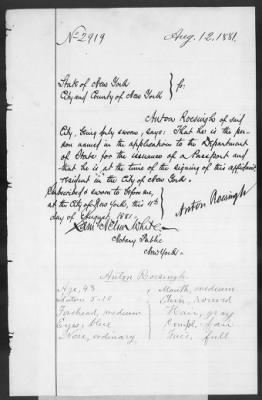 No 2919
Aug. 12, 1881.
State of New York
City and County of New York } ss:
Anton Roesingh of said
City, being duly sworn, says: That he is the per-
son named in the application to the Department
of State for the issuance of a Passport and
that he is, at the time of the signing of this affidavit,
resident in the City of New York.
Subscribed & sworn to before me,
at the City of New York, this 11th
day of August 1881.
Anton Roesingh
White
Notary Public
New York.
Anton Roesingh
Age, 43
Mouth, medium
Stature 5-10
Chin, round
Forehead, medium
Hair, gray
Eyes, blue
Compl. fair
Nose, ordinary
Face, full